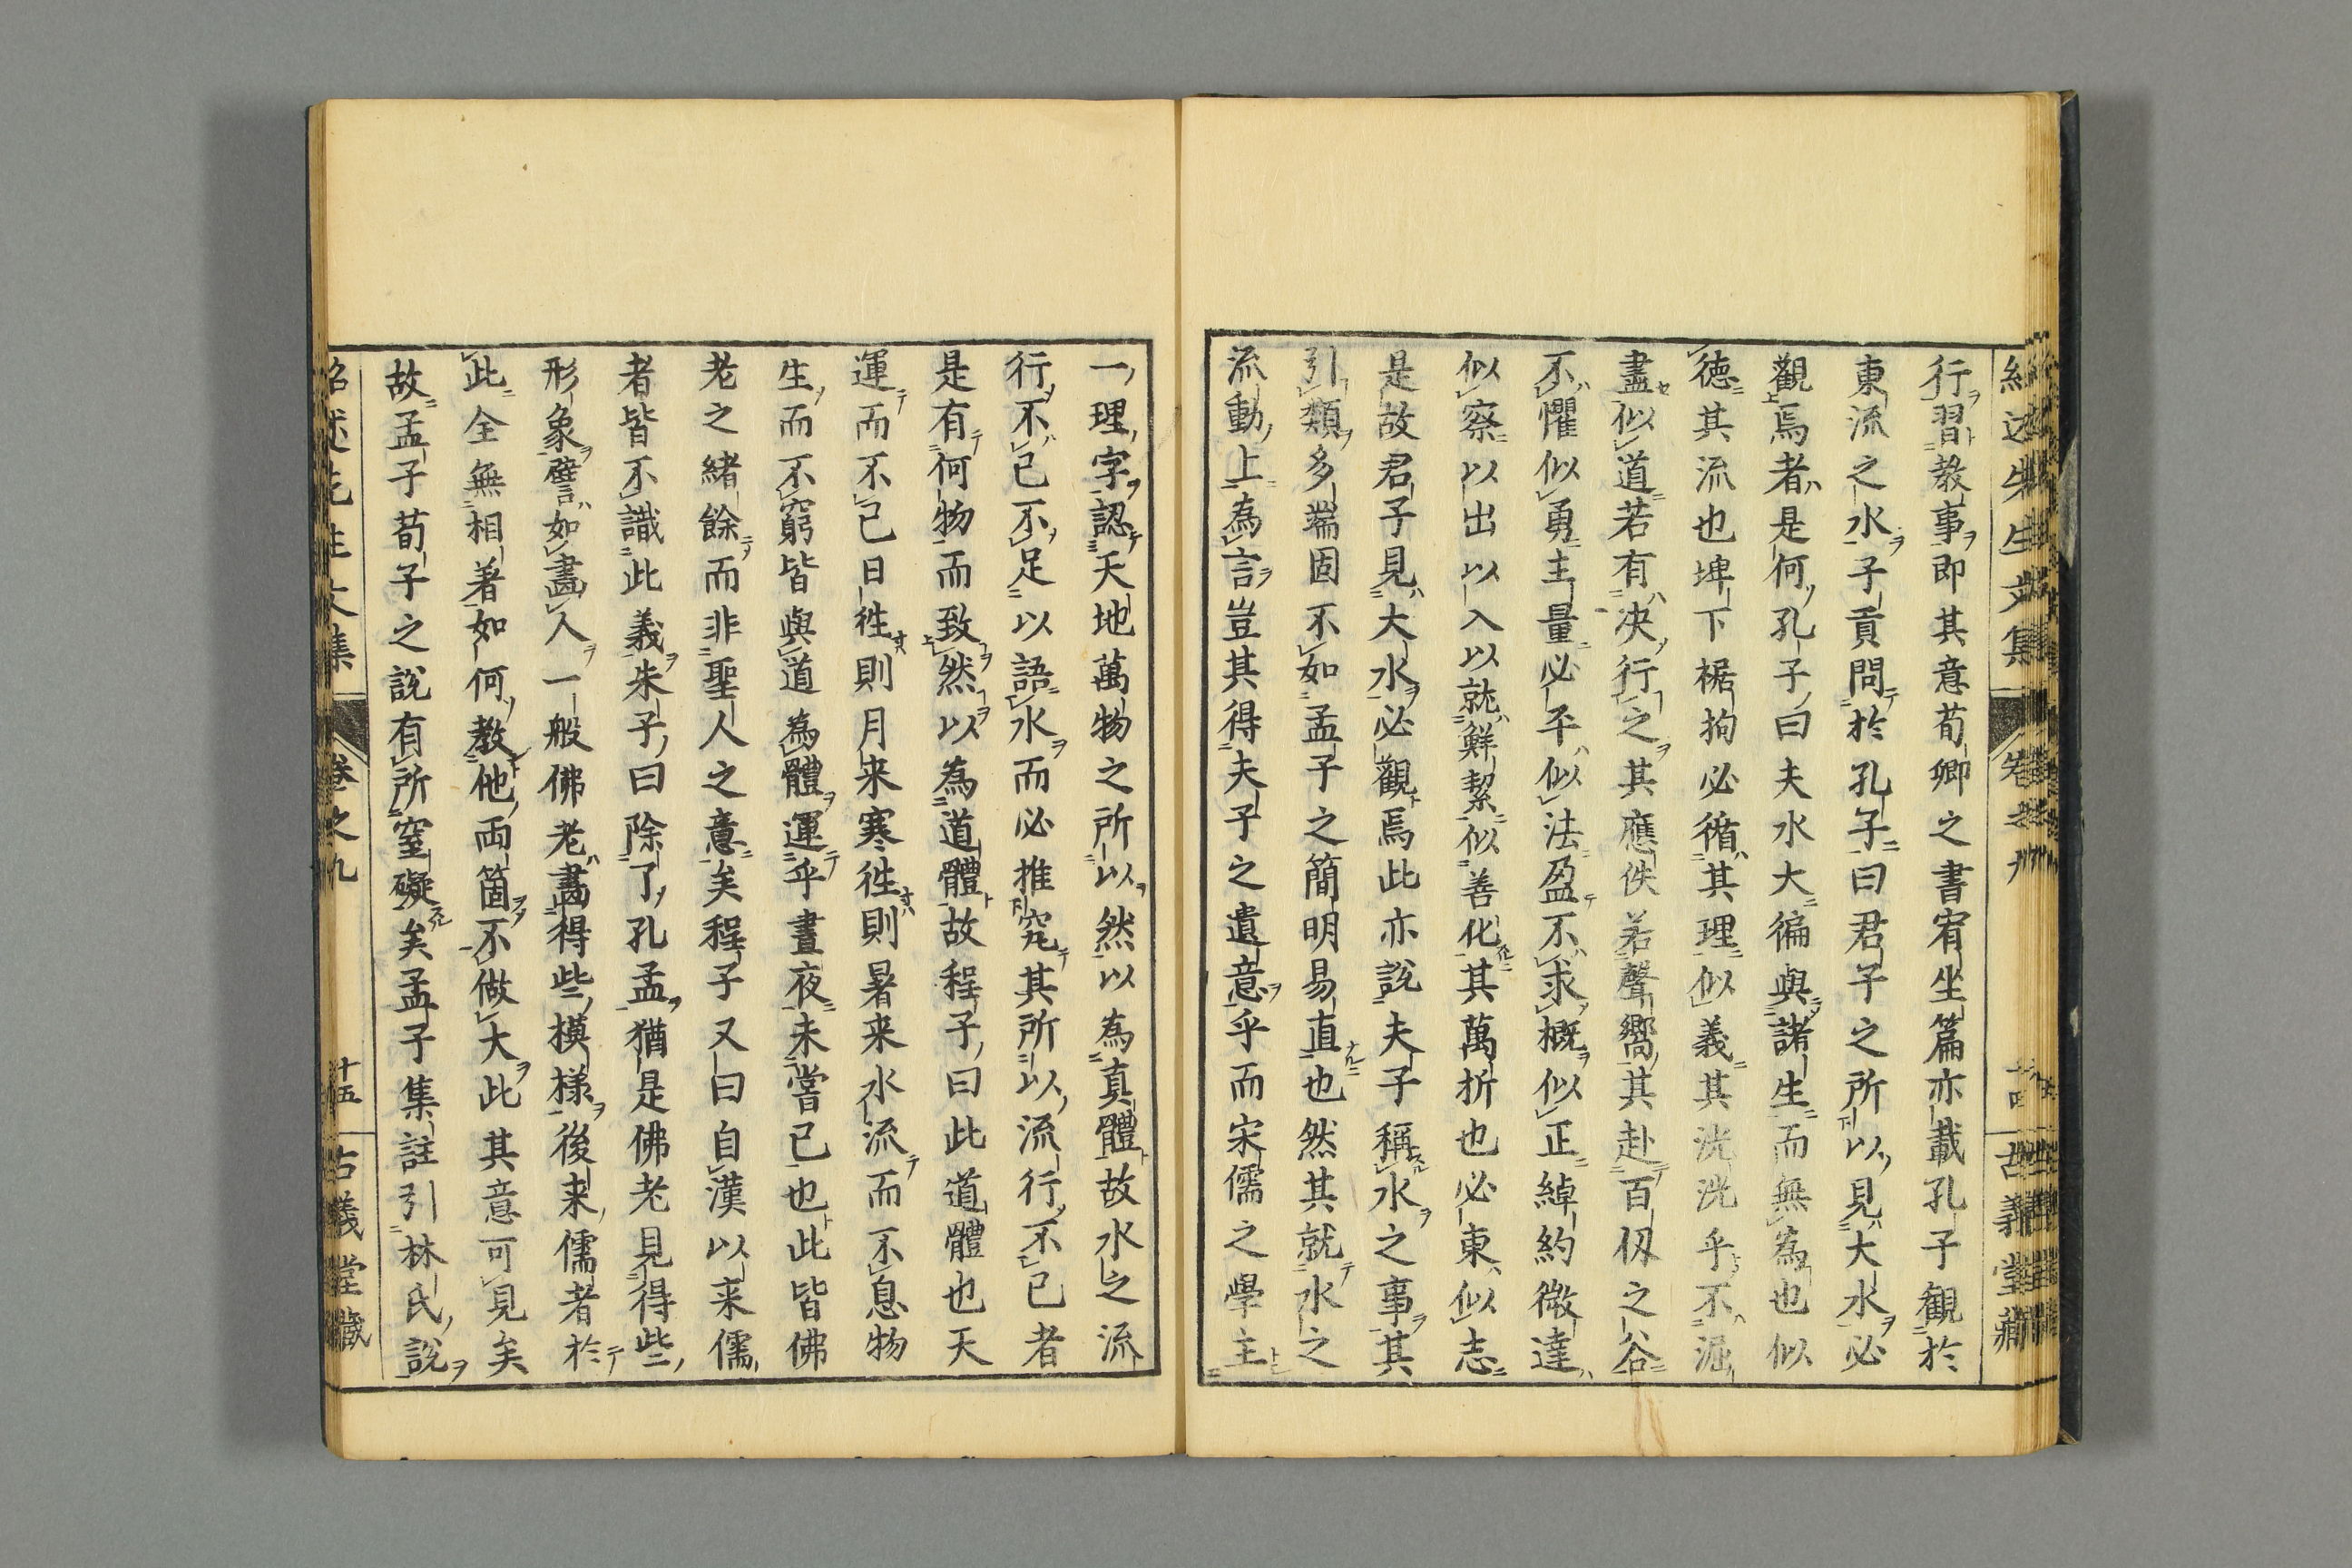 紹述先生文集
卷之九
十四
古義堂藏
行習教事即其意荀卿之書宥坐篇亦載孔子觀於
東流之水子貢問於孔子曰君子之所以見大水必
觀焉者是何孔子曰夫水大徧與諸生而無為也似
徳其流也埤下裾拘必循其理似義其洸洸乎不淈
盡似道若有决行之其應佚若聲嚮其赴百仭之谷
不懼似勇主量必平似法盈不求概似正綽約微達
似察以出以入以就鮮絜似善化其萬折也必東似志
是故君子見大水必觀焉此亦說夫子稱水之事其
引類多端固不如孟子之簡明易直也然其就水之
流動上為言豈其得夫子之遺意乎而宋儒之學主
一理字認天地萬物之所以然以為真體故水之流
行不已不足以語水而必推究其所以流行不已者
是有何物而致然以為道體故程子曰此道體也天
運而不已日徃則月来寒徃則暑来水流而不息物
生而不窮皆與道為體運乎晝夜未嘗已也此皆佛
老之緒餘而非聖人之意矣程子又曰自漢以来儒
者皆不識此義朱子曰除了孔孟猶是佛老見得些
形象譬如畫人一般佛老畫得些模樣後来儒者於
此全無相著如何教他両箇不做大此其意可見矣
故孟子荀子之說有所窒礙矣孟子集註引林氏說
紹述先生文集
卷之九
十五
古義堂藏